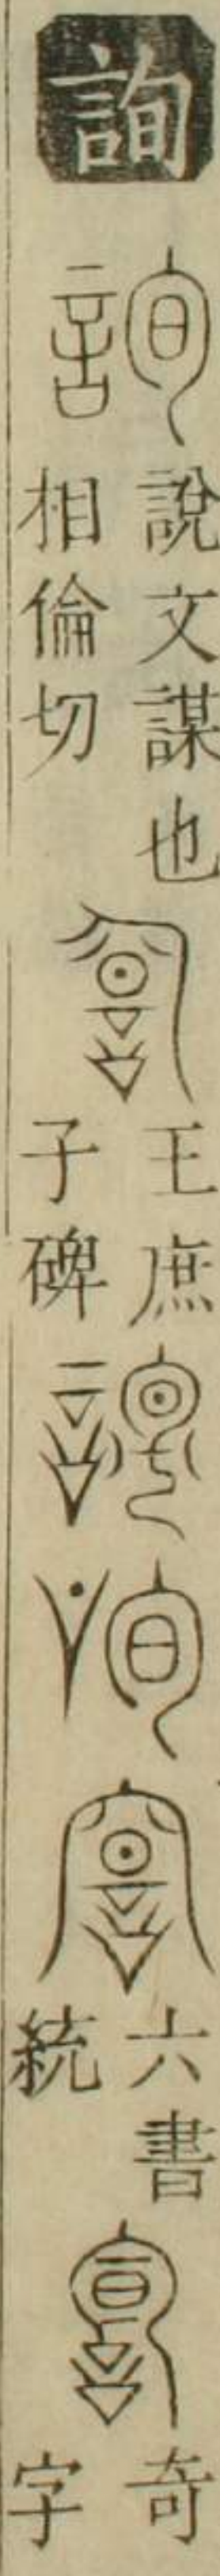 詢
說文謀也
相倫切
王庶
子碑
六書
統
奇
字